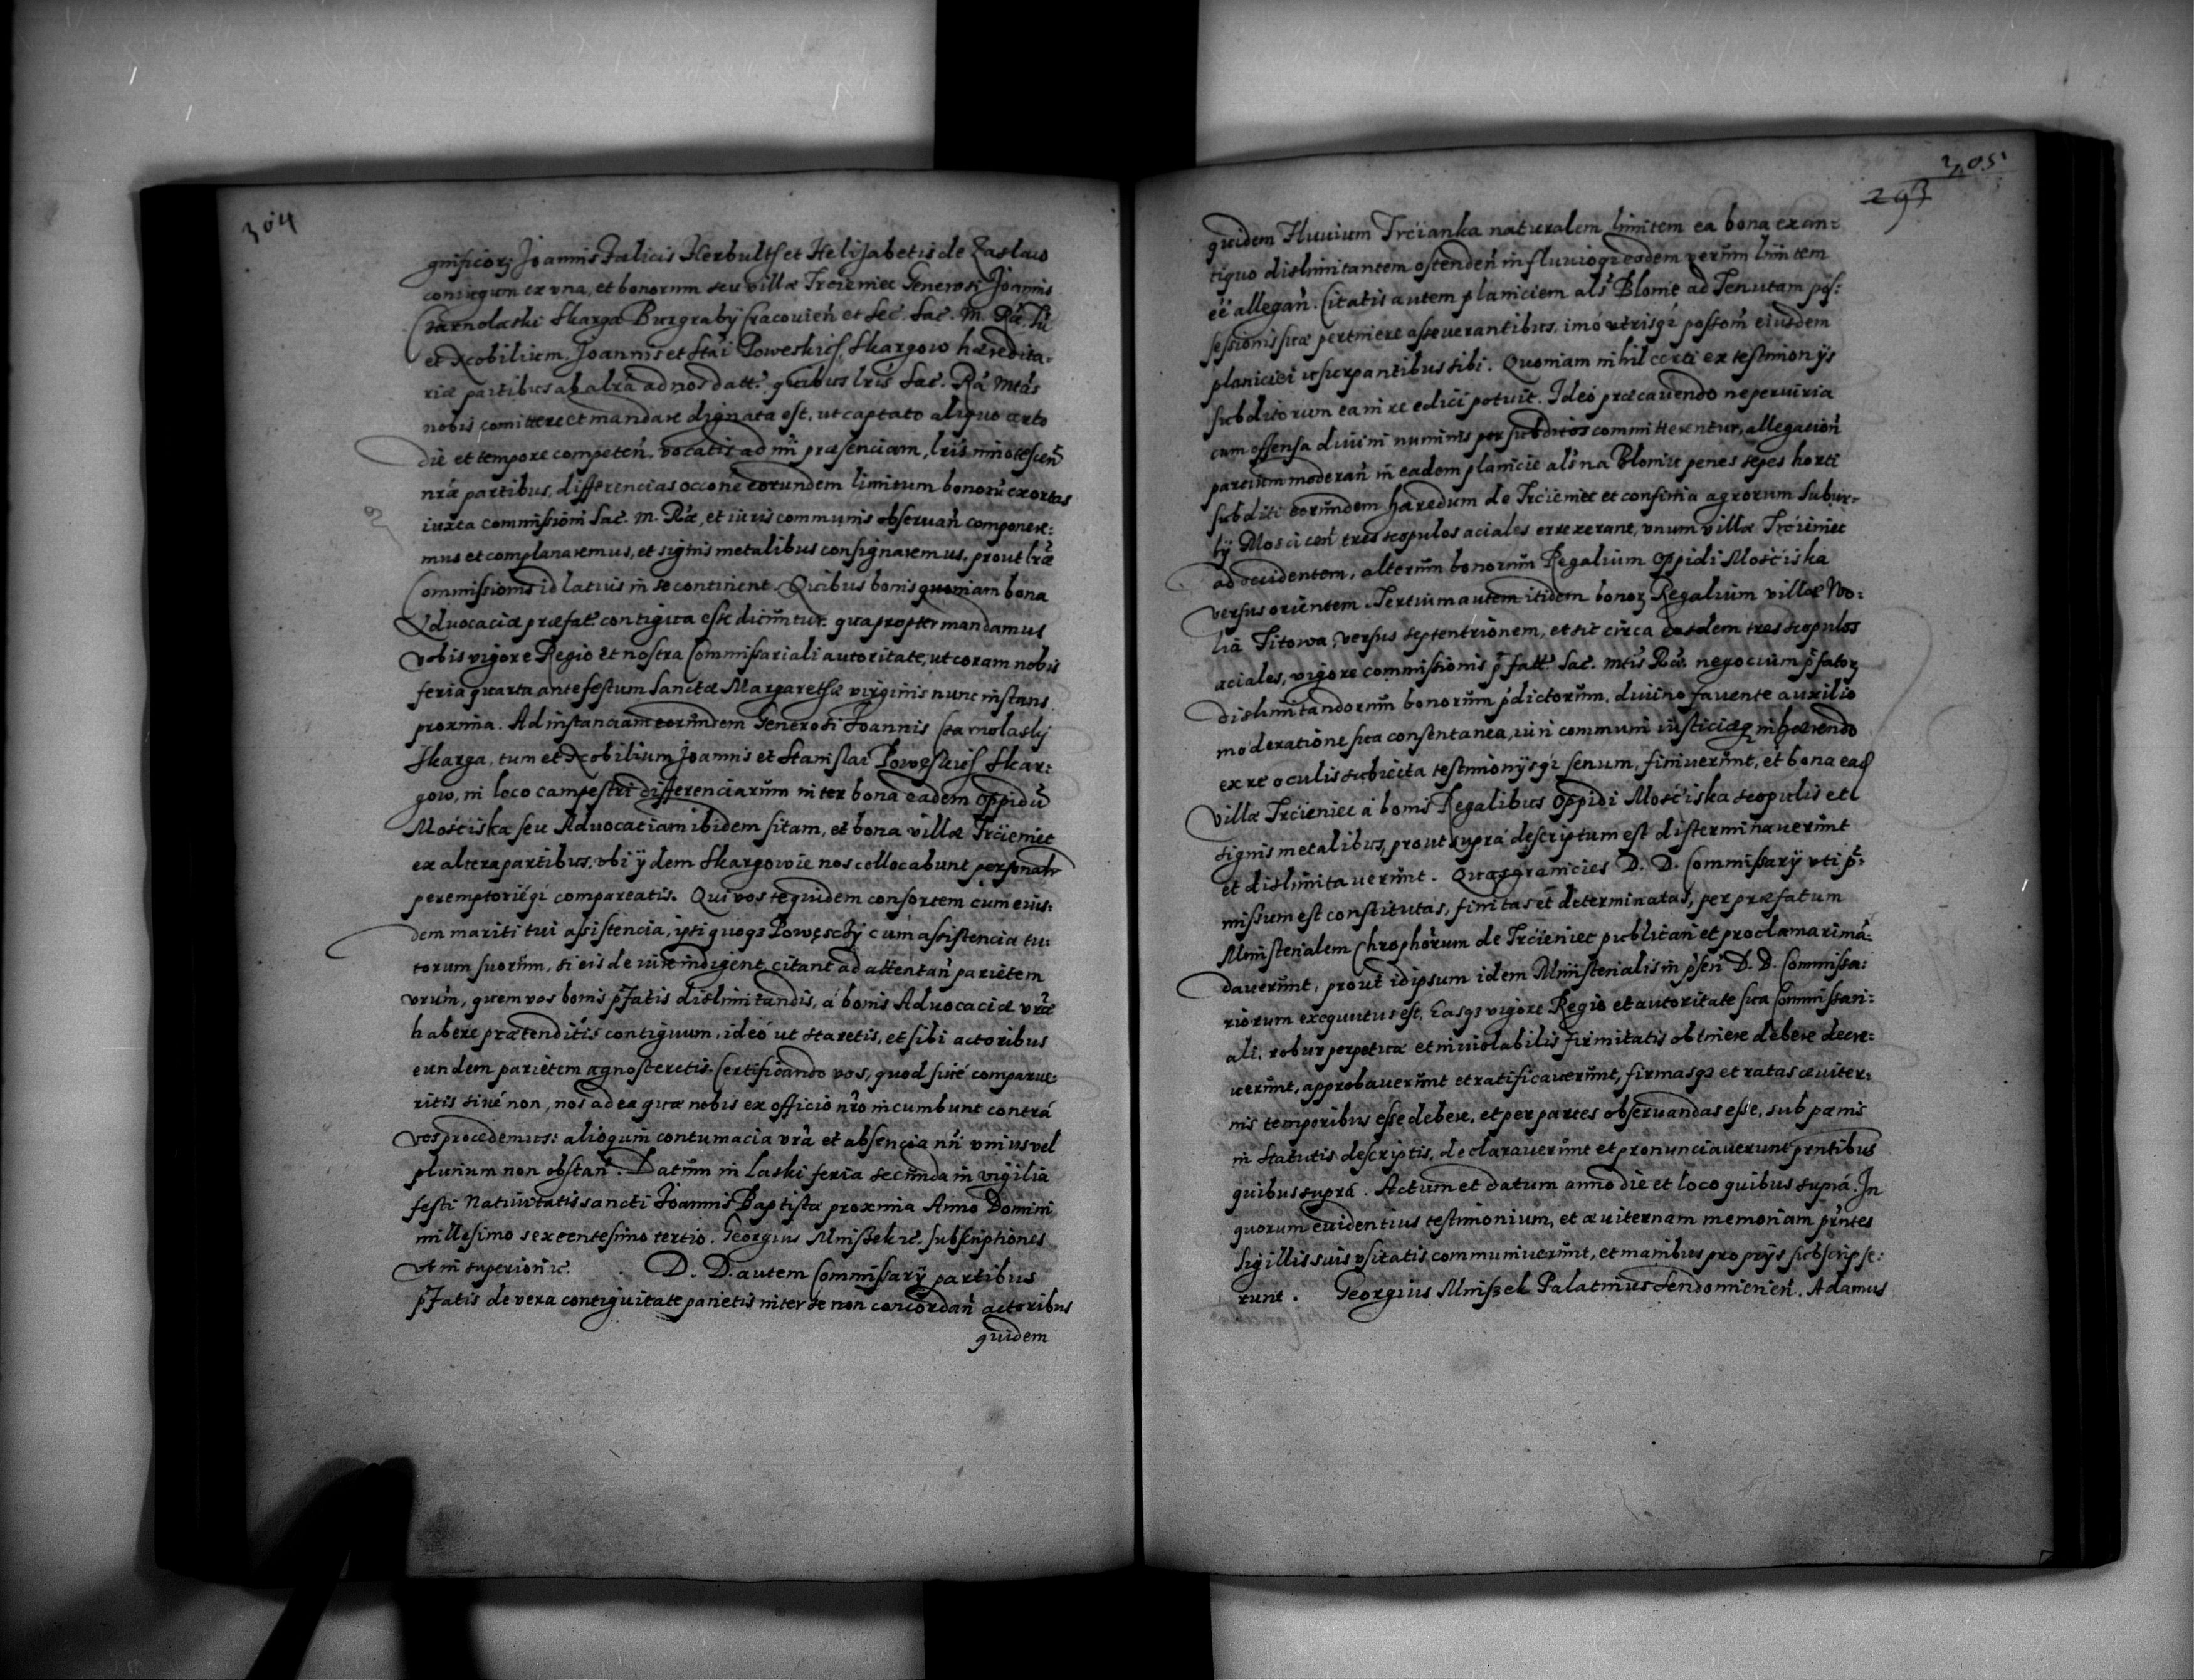 304
gnificorz Joannis Felicis Herbultz et Helizabetis de Zaslaw
coniugum ex vna, et bonorum seu villæ Trcieniec Generosi Joannis
Czarnolaski Skarga Burgrabÿ Cracouień et Sec. Sac. M. Ræ. Tū
et Nobilium Joannis et Stāi Poweskich Skargow hæredita:
riæ partibus ab altrā ad nos datt. quibus lris Sac. Rā Mtās
nobis comittere et mandare dignata est, ut captato aliquo certo
die et tempore competeń. vocatis ad nr̄i præsenciam, lris innotesceń
nræ partibus, differencias occone eorundem limitum bonorū exortas
iuxta commissiom̄ Sac. M. Ræ, et iuris communis obseruań componere:
mus et complanaremus, et signis metalibus consignaremus. prout lræ
Commissionis id latius in se continent. Quibus bonis quoniam bona
Aduocaciæ præfat. contigua esse dicuntur. quapropter mandamus
vobis vigore Regio et nostra Commissariali autoritate, ut coram nobis
feria quarta ante festum Sanctæ Margarethæ virginis nunc instans
proxima. Ad instanciam eorundem Generosi Joannis Czarnolaskj
Skarga, tum et Nobilium Joannis et Stanislai Powęskich Skar:
gow, in loco campestri differenciarum inter bona eadem oppidū
Mościska seu Aduocatiam ibidem sitam, et bona villæ Trcieniec
ex altera partibus, vbi ÿdem Skargowie nos collocabunt personalr
peremptorieqz compareatis. Qui vos te quidem consortem cum eius:
dem mariti tui assistencia, ipsi quoqz Powęscÿ cum assistencia tu:
torum suorum, si eis de iure indigent, citant ad attentań parietem
vrum, quem vos bonis pfatis dislimitandis, a bonis Aduocaciæ vræ
habere prætenditis contiguum, ideo ut staretis, et sibi actoribus
eundem parietem agnosceretis. Certificando vos, quod siue comparue:
ritis siue non, nos ad ea quæ nobis ex officio nro incumbunt contra
vos procedemus: alioquin contumacia vrā et absencia nri vnius vel
plurium non obstań. Datum in Laski feria secunda in vigilia
festi Natiuitatis sancti Joannis Baptistæ proxima Anno Domini
millesimo sexcentesimo tertio. Georgius Mniszek ic. subscriptiones
vt in superiori ic. D. D. autem Commissarÿ partibus
pfatis de vera contiguitate parietis inter se non concordań actoribus
quidem
305
297
quidem Fluuium Trcianka naturalem limitem ea bona ex an:
tiquo dislimitantem ostendeń in fluuioqz eodem verum limitem
eē allegań. Citatis autem planiciem als Błonie ad Tenutam pos:
sessionis suæ pertinere asseuerantibus, imo vtrisqz possom̄ eiusdem
planiciei vsurpantibus sibi. Quoniam nihil certi ex testimonÿs
subditorum ea in re edici potuit. Ideo præcauendo ne periuria
cum offensa diuini numinis per subditos committerentur, allegacioń
partium moderań in eadem planicie als na Błoniu penes sepes horti
subditi eorundem hæredum de Trcieniec et confinia agrorum Subur:
bÿ Mosciceń tres scopulos aciales errexerant, vnum villæ Trcieniec
ad occidentem, alterum bonorum Regalium oppidi Mościska
versus orientem. Tertium autem itidem bonorz Regalium villæ Wo:
lia Titowa, versus septentrionem, et sic circa eosdem tres scopulos
aciales, vigore commissionis pfatt. Sac. mtis Ræ. negocium pfatorz
dislimitandorum bonorum pdictorum, diuino fauente auxilio
moderatione sua consentanea, iuri communi iusticiæqz inhærendo
ex re oculis subiecta testimonÿsqz senum, finiuerunt, et bona ead
villæ Trcieniec a bonis Regalibus oppidi Mościska scopulis et
signis metalibus, prout supra descriptum est disterminauerunt
et dislimitauerunt. Quas granicies D. D. Commissarÿ vti p:
missum est constitutas, finitas et determinatas, per præfatum
Ministerialem Chrophorum de Trcieniec publicari et proclamari mā:
dauerunt, prout idipsum idem Ministerialis in pseń D. D. Commissa:
riorum exequutus est. Easqz vigore Regio et autoritate sua Commissari:
ali, robur perpetuæ et inuiolabilis firmitatis obtinere debere decre:
uerunt, approbauerunt et ratificauerunt, firmasqz et ratas æuiter:
nis temporibus esse debere, et per partes obseruandas esse, sub pænis
in Statutis descriptis, declarauerunt et pronunciauerunt prntibus
quibus supra. Actum et datum anno die et loco quibus supra. In
quorum euidentius testimonium, et æuiternam memoriam prntes
Sigillis suis vsitatis communiuerunt, et manibus proprÿs subscripse:
runt. Georgius Mniszek Palatinus Sendomirień. Adamus